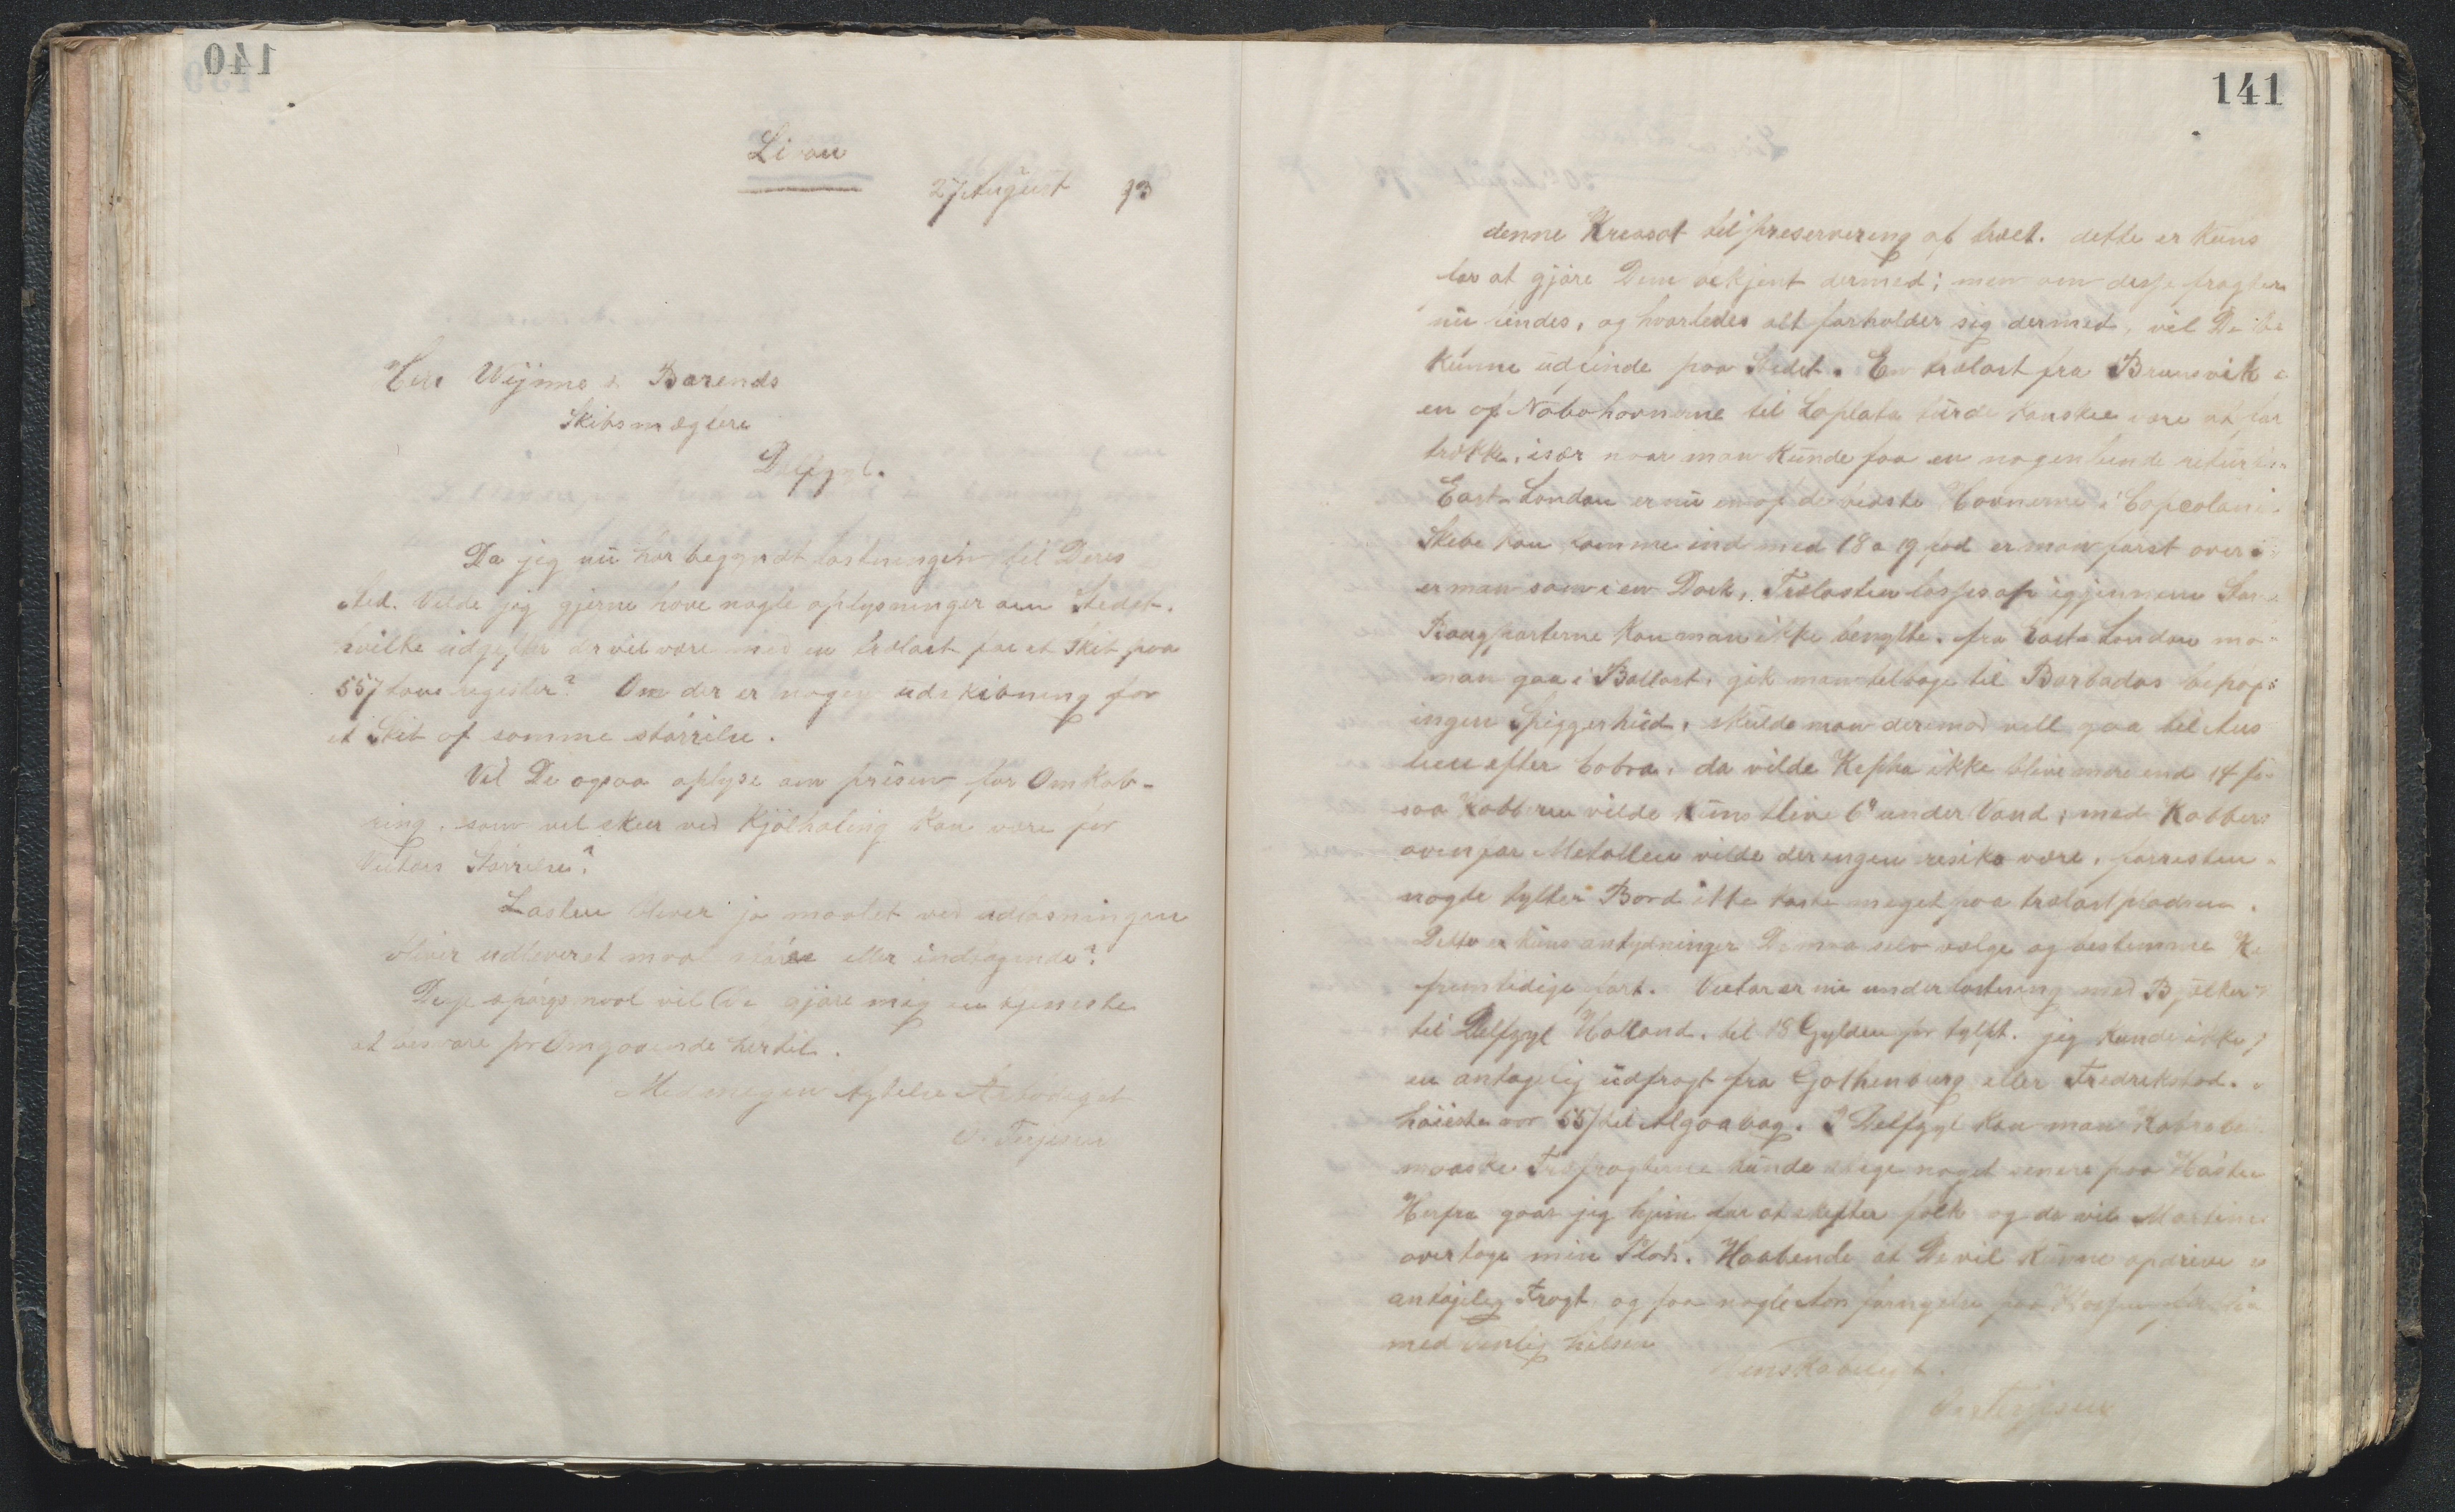 140
Libau
27 August 93
Herr Wijnne & Barends
Skibsmæglere
Delfzyl.
Da jeg nu har begyndt lastningen til Deres
Sted. Vilde jeg gjerne have nogle oplysninger om Stedet.
hvilke udgifter der vil være med en trælast for et Skib paa
557 tons register? Om der er nogen udskibning for
et Skib af samme störrelse.
Vil De ogsaa oplyse om prisen for Omkob-
ring, som vel skeer ved Kjölhaling kan være for
Victors Störrelse?
Lasten bliver jo maalet ved udlosningen
bliver udleveret maal större eller indtagende?
Disse spörgsmaal vil De gjöre mig en tjeneste
at besvare pr Omgaaende hertil.
Med megen Agtelse Ærbodigst
O. Terjesen
141
denne Kreosot til preservering af træet. dette er kuns
for at gjöre Dem bekjent dermed; men om disse fragter
nu findes, og hvorledes alt forholder sig dermed, vil De
kunne udfinde paa Stedet. En trælast fra Brunsvik
en af Nabohavnene til Laplata turde kanskee være at for
trække, især naar man kunde faa en nogenlunde retur
East London er nu en af de bedste Havnerne i Capcoloni
Skibe kan komme ind med 18 a 19 fod er man först over
er man som i en Dock, Trælasten losses op igjennem
Raagporterne kan man ikke benytte. fra East London
man gaa i Ballast, gik man tilbage til Barbados
ingen Spiggerhud, skulde man derimod vell gaa til Aus
lien efter Cobra, da vilde Kepha ikke blive mere end 14
saa Kobberen vilde kuns blive 6" under Vand, med Kobber
ovenfor Metallen vilde der ingen resiko være, forresten
nogle tylter Bord ikke koste meget paa trælastpladsen.
Dette er kuns antydninger De maa selv vælge og bestemme
fremtidige fart. Victor er nu under lastning med Bjælker
til Delfzyl Holland. til 18 Gylden pr tylft. jeg kunde ikke
en antagelig udfragt fra Gothenburg eller Fredrikstad.
höieste var 55/ til Algoabay. I Delfzyl kan man Kobrabe
maaske Træfragterne kunde stige noget senere paa Hösten
Herfra gaar jeg hjem for at skifte folk og da vil
overtage min Plads. Haabende at De vil kunne opdrive
antagelig Fragt og faa nogle
med Venlig hilsen
Venskabeligst.
O. Terjesen